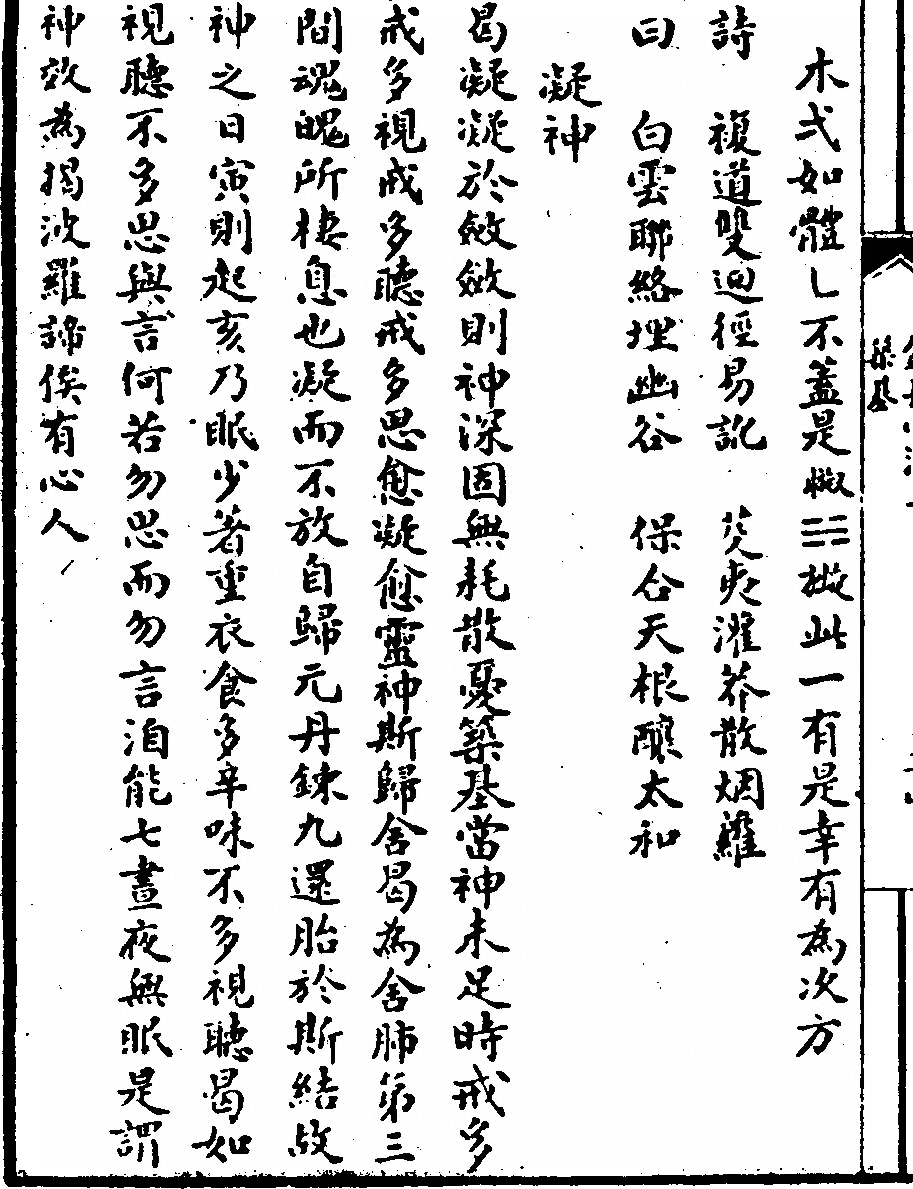 木弍如體乚不蓋是㮣☵擬此一有是幸有為次方
詩　複道雙迴徑易訛　茭夷濯莽散烟蘿
曰　白雲聯絡埋幽谷　保合天根釀太和
凝神
曷凝凝於斂斂則神深固無耗散憂築基當神未足時戒多
戒多視戒多聽戒多思愈凝愈靈神斯歸舍曷為舍肺第三
間魂魄所棲息也凝而不放自歸元丹鍊九還胎於斯結故
神之日寅則起亥乃眠少著重衣食多辛味不多視聽曷如
視聽不多思與言何若勿思而勿言洎能七晝夜無眠是謂
神效為揭波羅諦俟有心人
築基